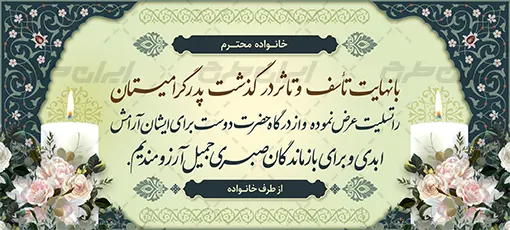 خانواده محترم
با نهایت تأسف و تاثر درگذشت پدر گرامیتان
را تسلیت عرض نموده و از درگاه حضرت دوست برای ایشان آرامش
ابدی و برای بازماندگان صبری جمیل آرزومندیم.
از طرف خانواده